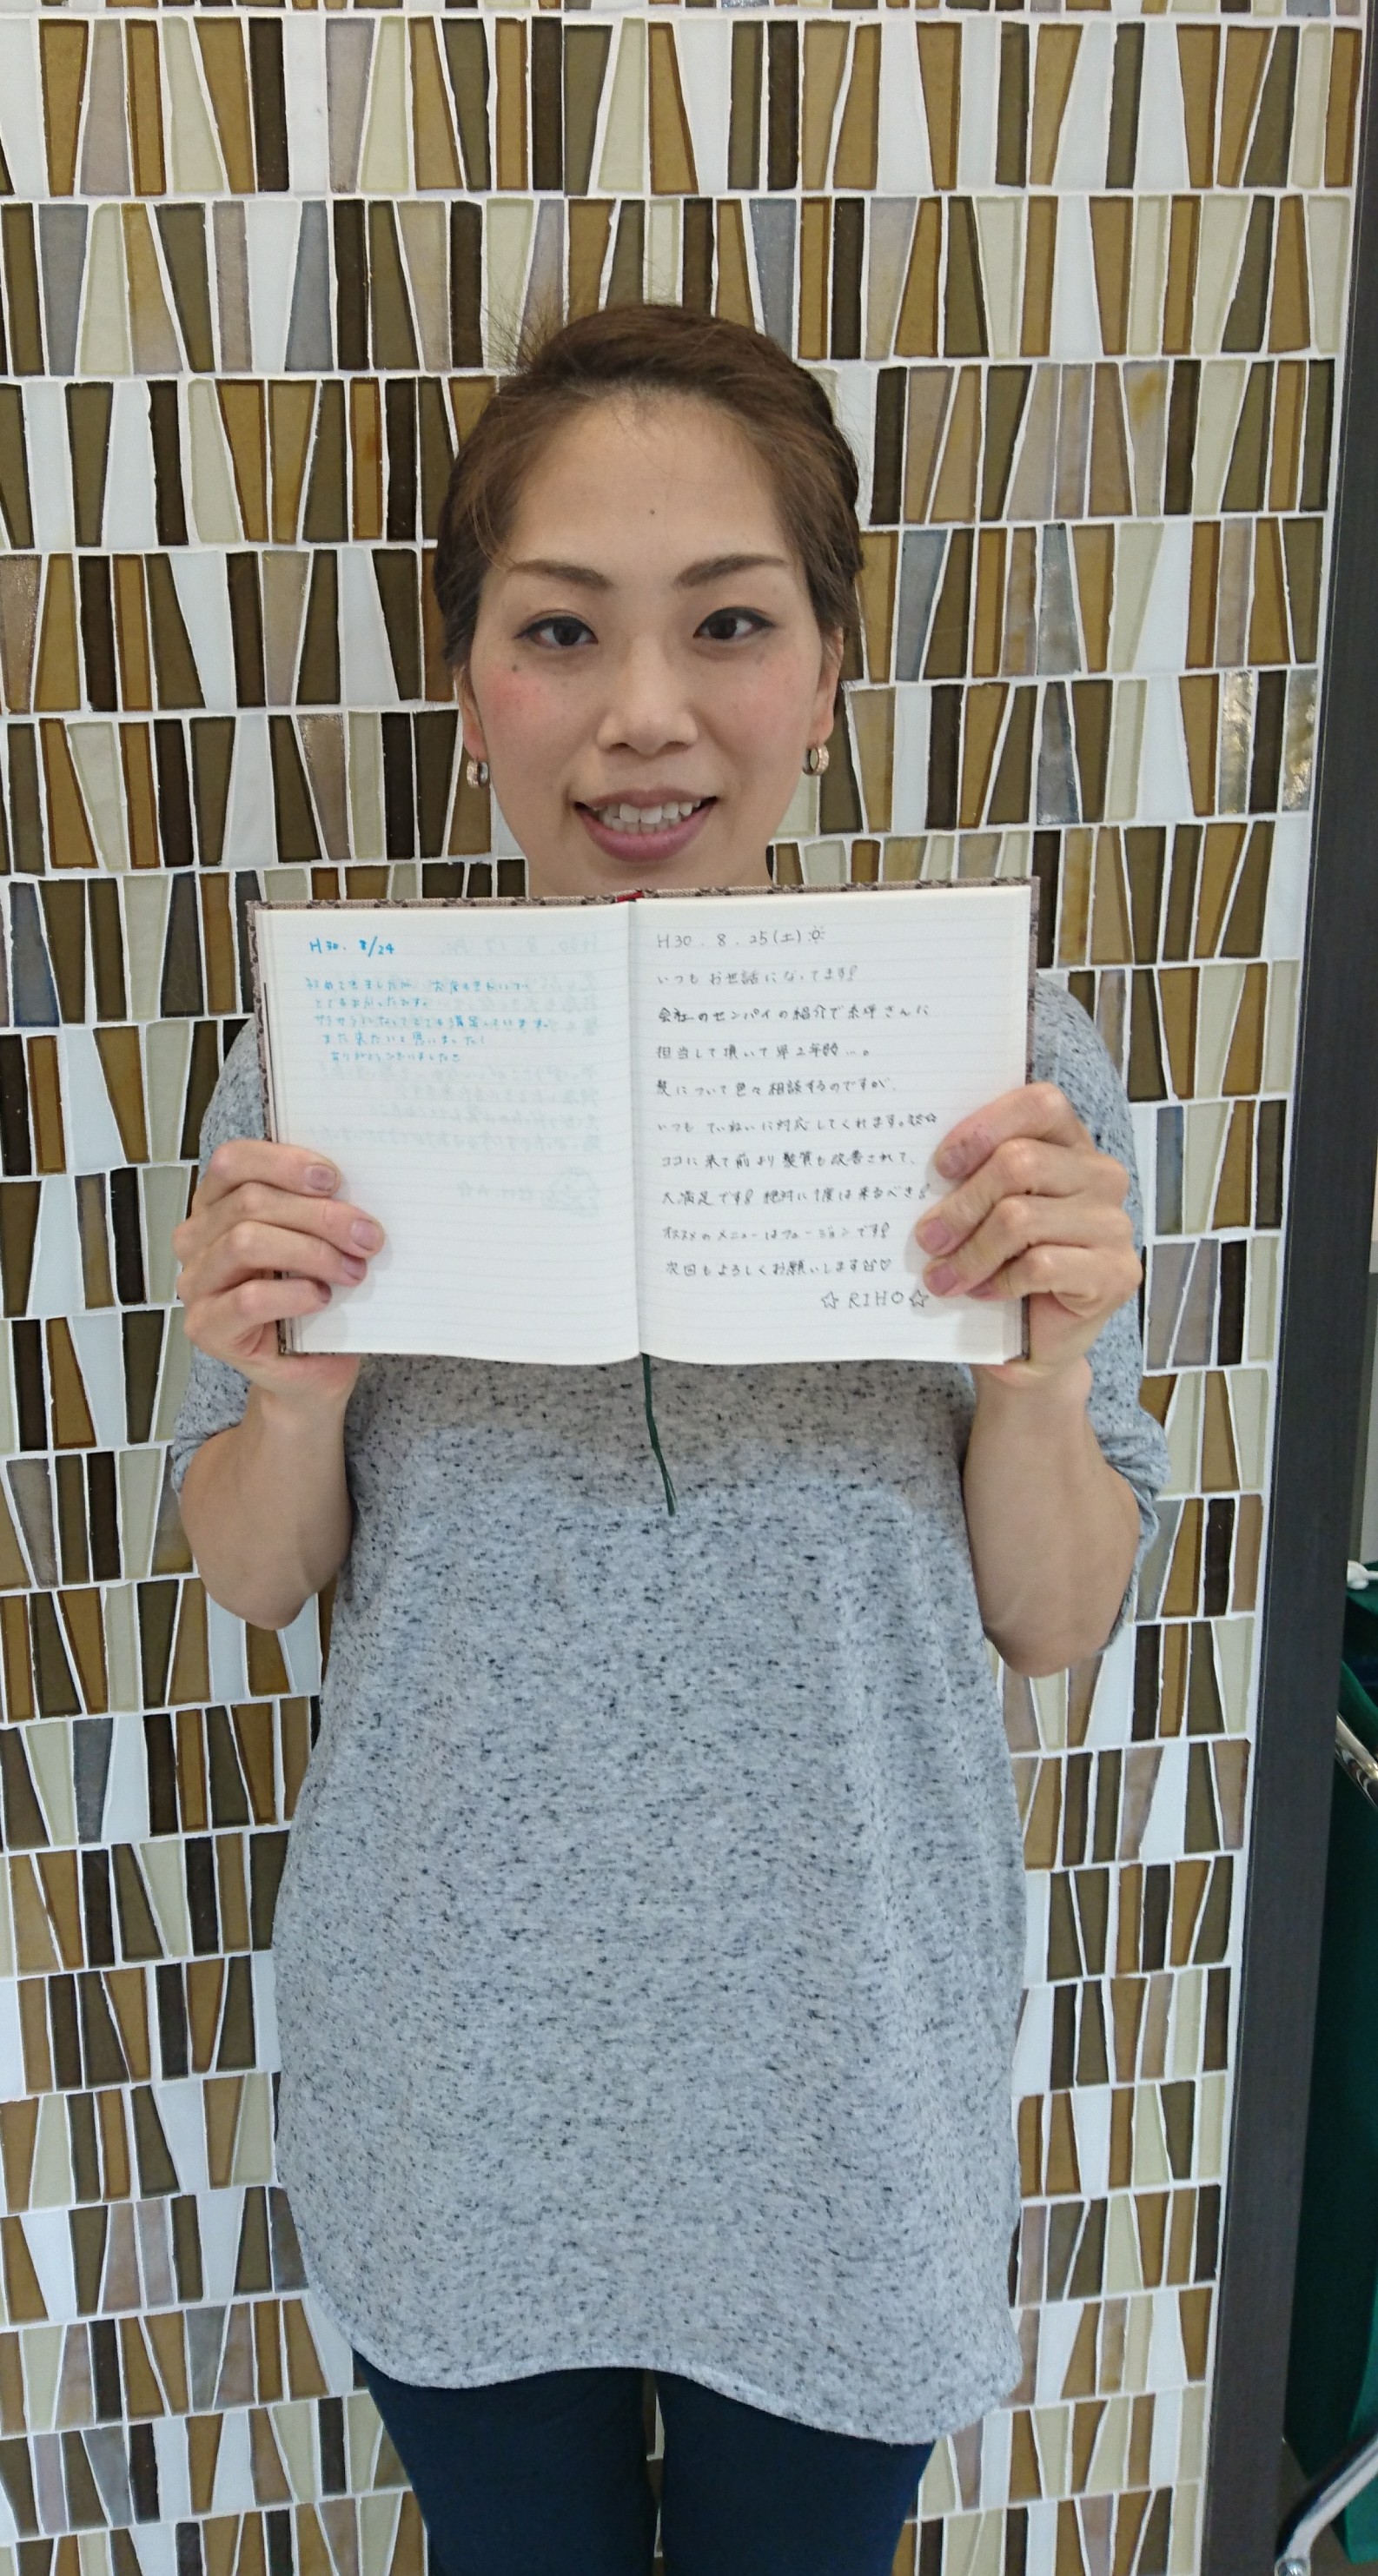 H30. 8/24
初めて来ましたが、
とてもよかったです。
サラサラになってとても満足しています。
また来たいと思いました!
ありがとうございました
H30.8.25(土)
いつもお世話になってます!
会社のセンパイの紹介で糸坪さんに
担当して頂いて早2年弱...。
髪について色々相談するのですが、
いつもていねいに対応してくれます。
ココに来て前より髪質も改善されて、
大満足です! 絶対に1度は来るべき!
オススメのメニューはフュージョンです!
次回もよろしくお願いします♡
☆RIHO☆